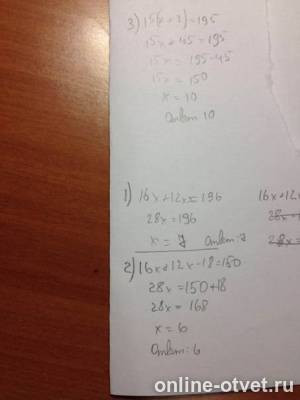 3) 15(x+3)=195
15x+45=195
15x = 195-45
15x = 150
x = 10
1) 16x+12x=196
28x=196
x = 7
2) 16x+12x-18=150
28x=150+18
28x = 168
x = 6
16x+12
28x
28x=
online-otvet.ru